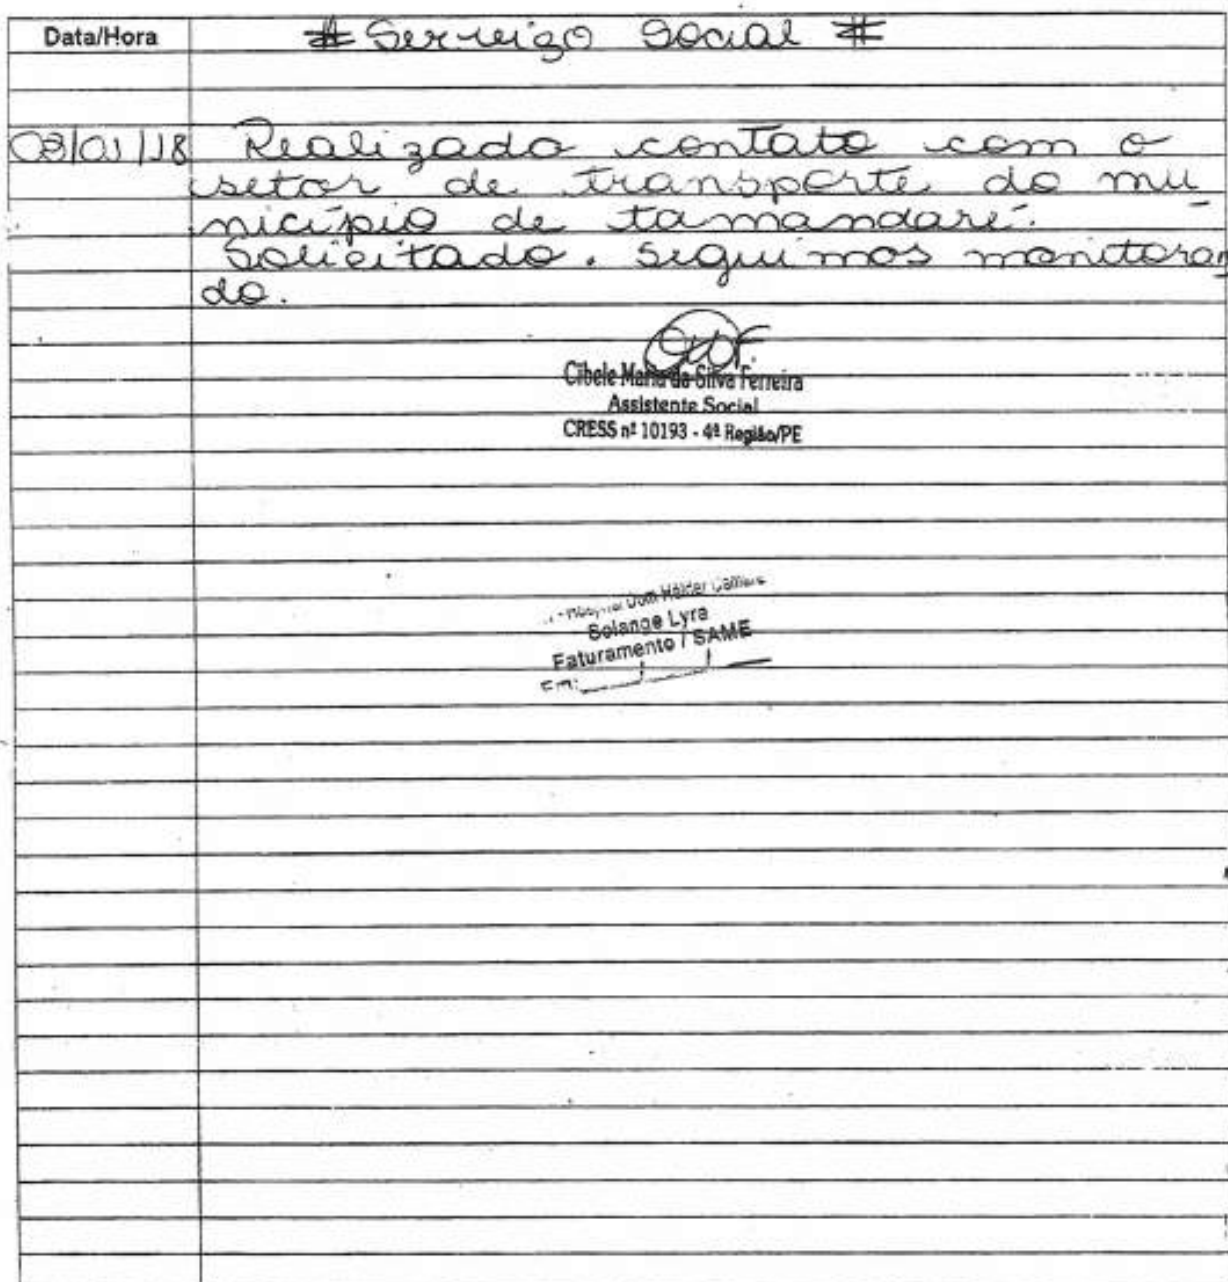 Data/Hora # Serviço Social #
03/01/18 Realizado contato com o
setor de transporte do mu
nicípio de tamandaré.
Solicitado. Seguimos monitoran
do.
Cibele Maria da Silva Ferreira
Assistente Social
CRESS nº 10193 - 4ª Região/PE
Hospital Dom Hélder Câmara
Solange Lyra
Faturamento / SAME
Em: ___/___/___